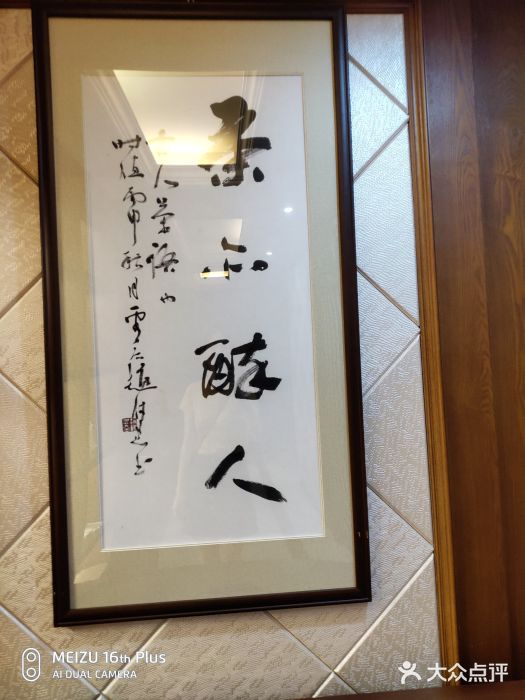 茶亦醉人
古人茶語也
時值丙申秋月
MEIZU 16th Plus
AI DUAL CAMERA
大众点评